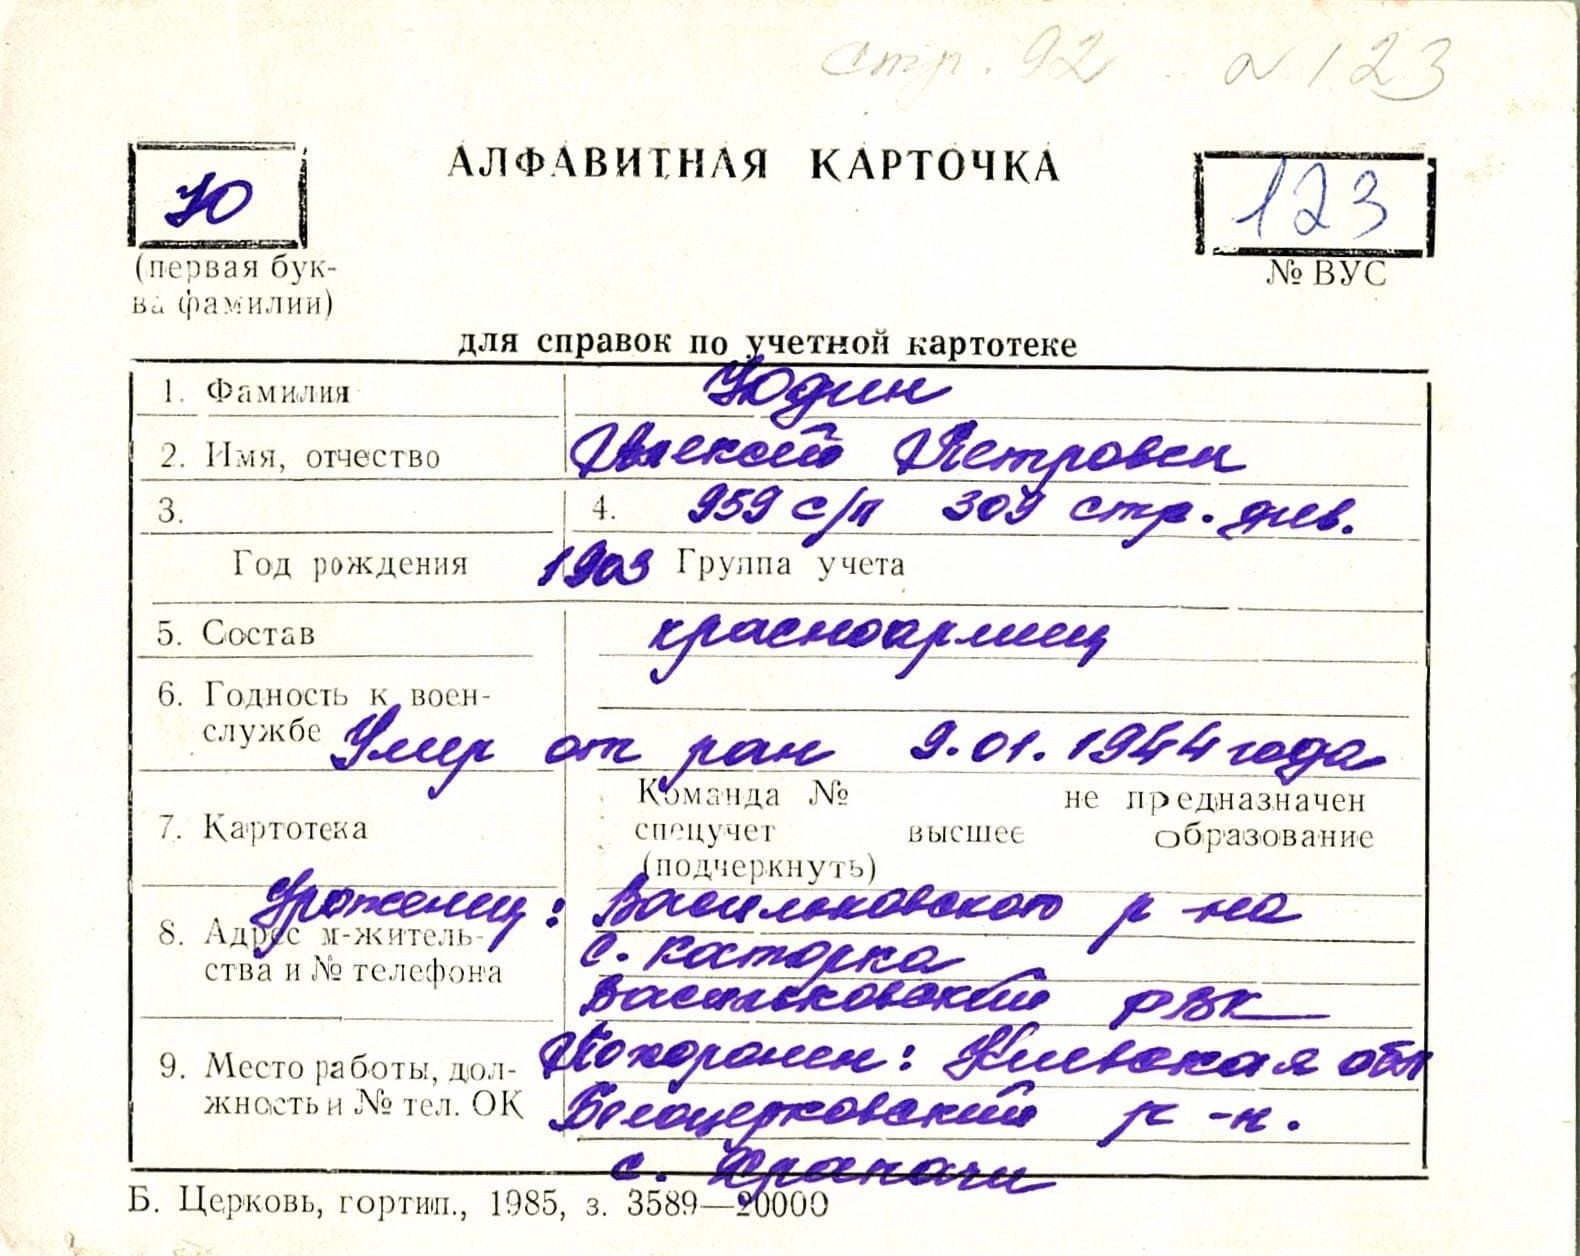 стр. 92 № 123
Ю АЛФАВИТНАЯ КАРТОЧКА 123
(первая бук-
ва фамилии)
№ ВУС
для справок по учетной картотеке
1. Фамилия Юдин
2. Имя, отчество Алексей Петрович
3. 4. 959 с/п 309 стр. див.
Год рождения 1903 Группа учета
5. Состав красноармеец
6. Годность к воен-
службе Умер от ран 9.01.1944 года
7. Картотека
Команда № не предназначен
спецучет высшее образование
(подчеркнуть)
Уроженец: Васильковского р-на
8. Адрес м-житель-
ства и № телефона
с. Каторка
Васильковский РВК
9. Место работы, дол-
жность и № тел. ОК
Похоронен: Киевская обл
Белоцерковский р-н.
с. Храпачи
Б. Церковь, гортип., 1985, з. 3589—20000